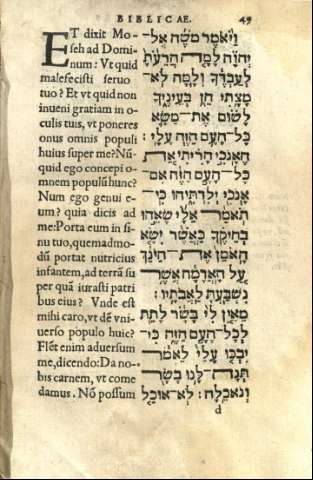 BIBLICAE. 49
ET dixit Mo-
seh ad Domi-
num: Vt quid
malefecisti seruo
tuo? Et vt quid non
inueni gratiam in o-
culis tuis, vt poneres
onus omnis populi
huius super me? Nũ-
quid ego concepi o-
mnem populũ hunc?
Num ego genui e-
um? quia dicis ad
me: Porta eum in si-
nu tuo, quemadmo-
dũ portat nutricius
infantem, ad terrã su
per quã iurasti patri
bus eius? Vnde est
mihi caro, vt dẽ vni-
uerso populo huic?
Flẽt enim aduersum
me, dicendo: Da no-
bis carnem, vt come
damus. Nõ possum
וַיֹּאמֶר מֹשֶׁה אֶל־
יְהוָֹה לָמָה הֲרֵעֹתָ
לְעַבְדֶּךָ וְלָמָּה לֹא־
מָצָתִי חֵן בְּעֵינֶיךָ
לָשׂוּם אֶת־מַשָּׂא
כָּל־הָעָם הַזֶּה עָלָי׃
הֶאָנֹכִי הָרִיתִי אֵת
כָּל־הָעָם הַזֶּה אִם־
אָנֹכִי יְלִדְתִּיהוּ כִּי־
תֹאמַר אֵלַי שָׂאֵהוּ
בְחֵיקֶךָ כַּאֲשֶׁר יִשָּׂא
הָאֹמֵן אֶת־הַיֹּנֵק
עַל הָאֲדָמָה אֲשֶׁר
נִשְׁבַּעְתָּ לַאֲבֹתָיו׃
מֵאַיִן לִי בָּשָׂר לָתֵת
לְכָל־הָעָם הַזֶּה כִּי־
יִבְכּוּ עָלַי לֵאמֹר
תְּנָה־לָּנוּ בָשָׂר
וְנֹאכֵלָה׃ לֹא־אוּכַל
d